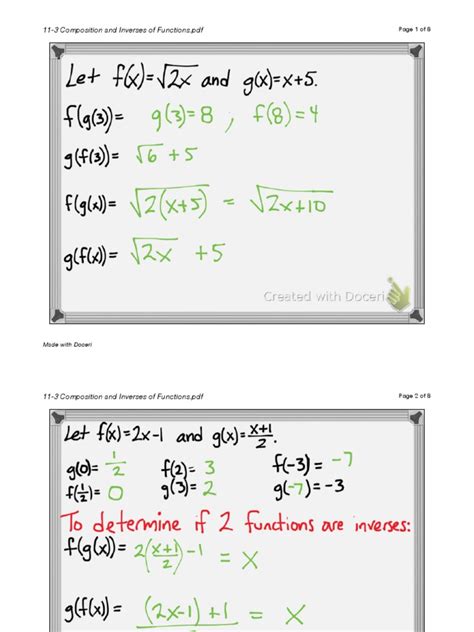 11-3 Composition and Inverses of Functions.pdf Page 1 of 8
Let f(x)=√2x and g(x)=x+5.
f(g(3))= g(3)=8 , f(8)=4
g(f(3))= √6 +5
f(g(x))= √2(x+5) = √2x+10
g(f(x))= √2x +5
Created with Doceri
Made with Doceri
11-3 Composition and Inverses of Functions.pdf Page 2 of 8
Let f(x)=2x-1 and g(x)=x+1/2.
g(0)= 1/2 f(2)= 3 f(-3)= -7
f(1/2)= 0 g(3)= 2 g(-7)=-3
To determine if 2 functions are inverses:
f(g(x))= 2(x+1/2)-1 = x
g(f(x))= (2x-1)+1 = x